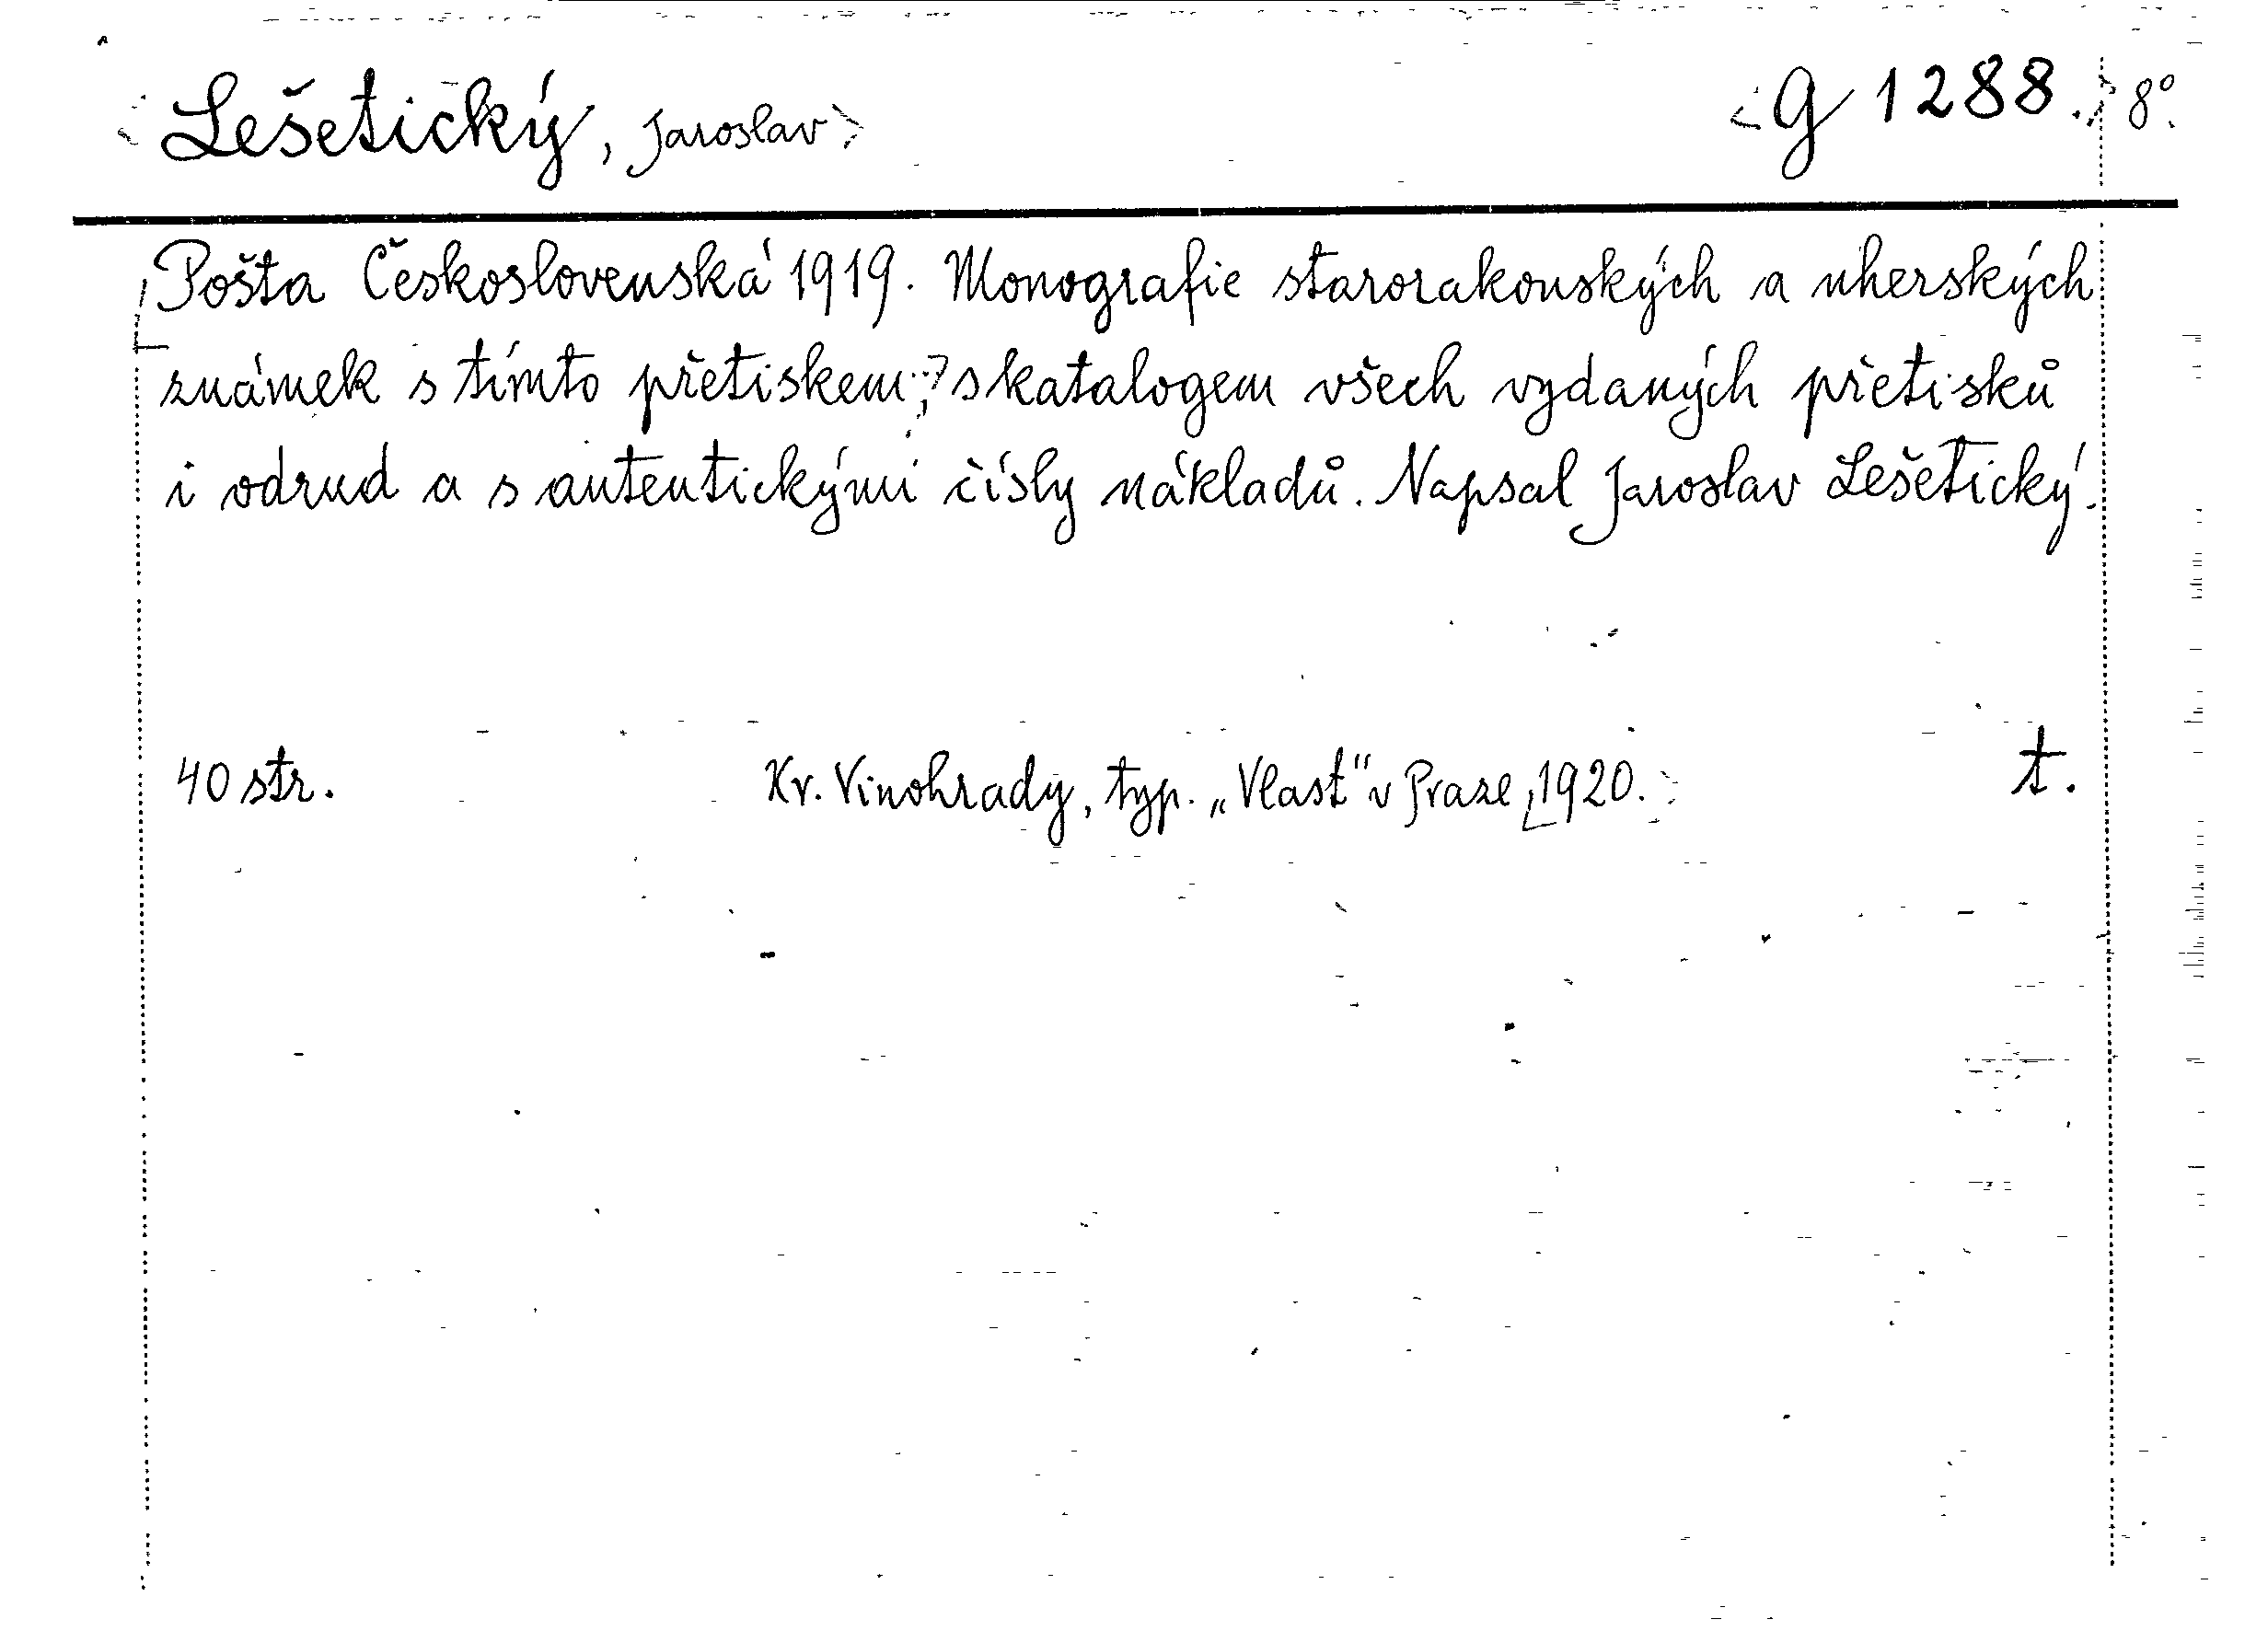 Lešetický, Jaroslav g 1288. 8°.
Pošta Československá 1919. Monografie starorakouských a uherských
známek s tímto přetiskem, s katalogem všech vydaných přetisků
i odrud a s autentickými čísly nákladů. Napsal Jaroslav Lešetický.
40 str. Kr. Vinohrady, typ. „Vlast“ v Praze, 1920. t.